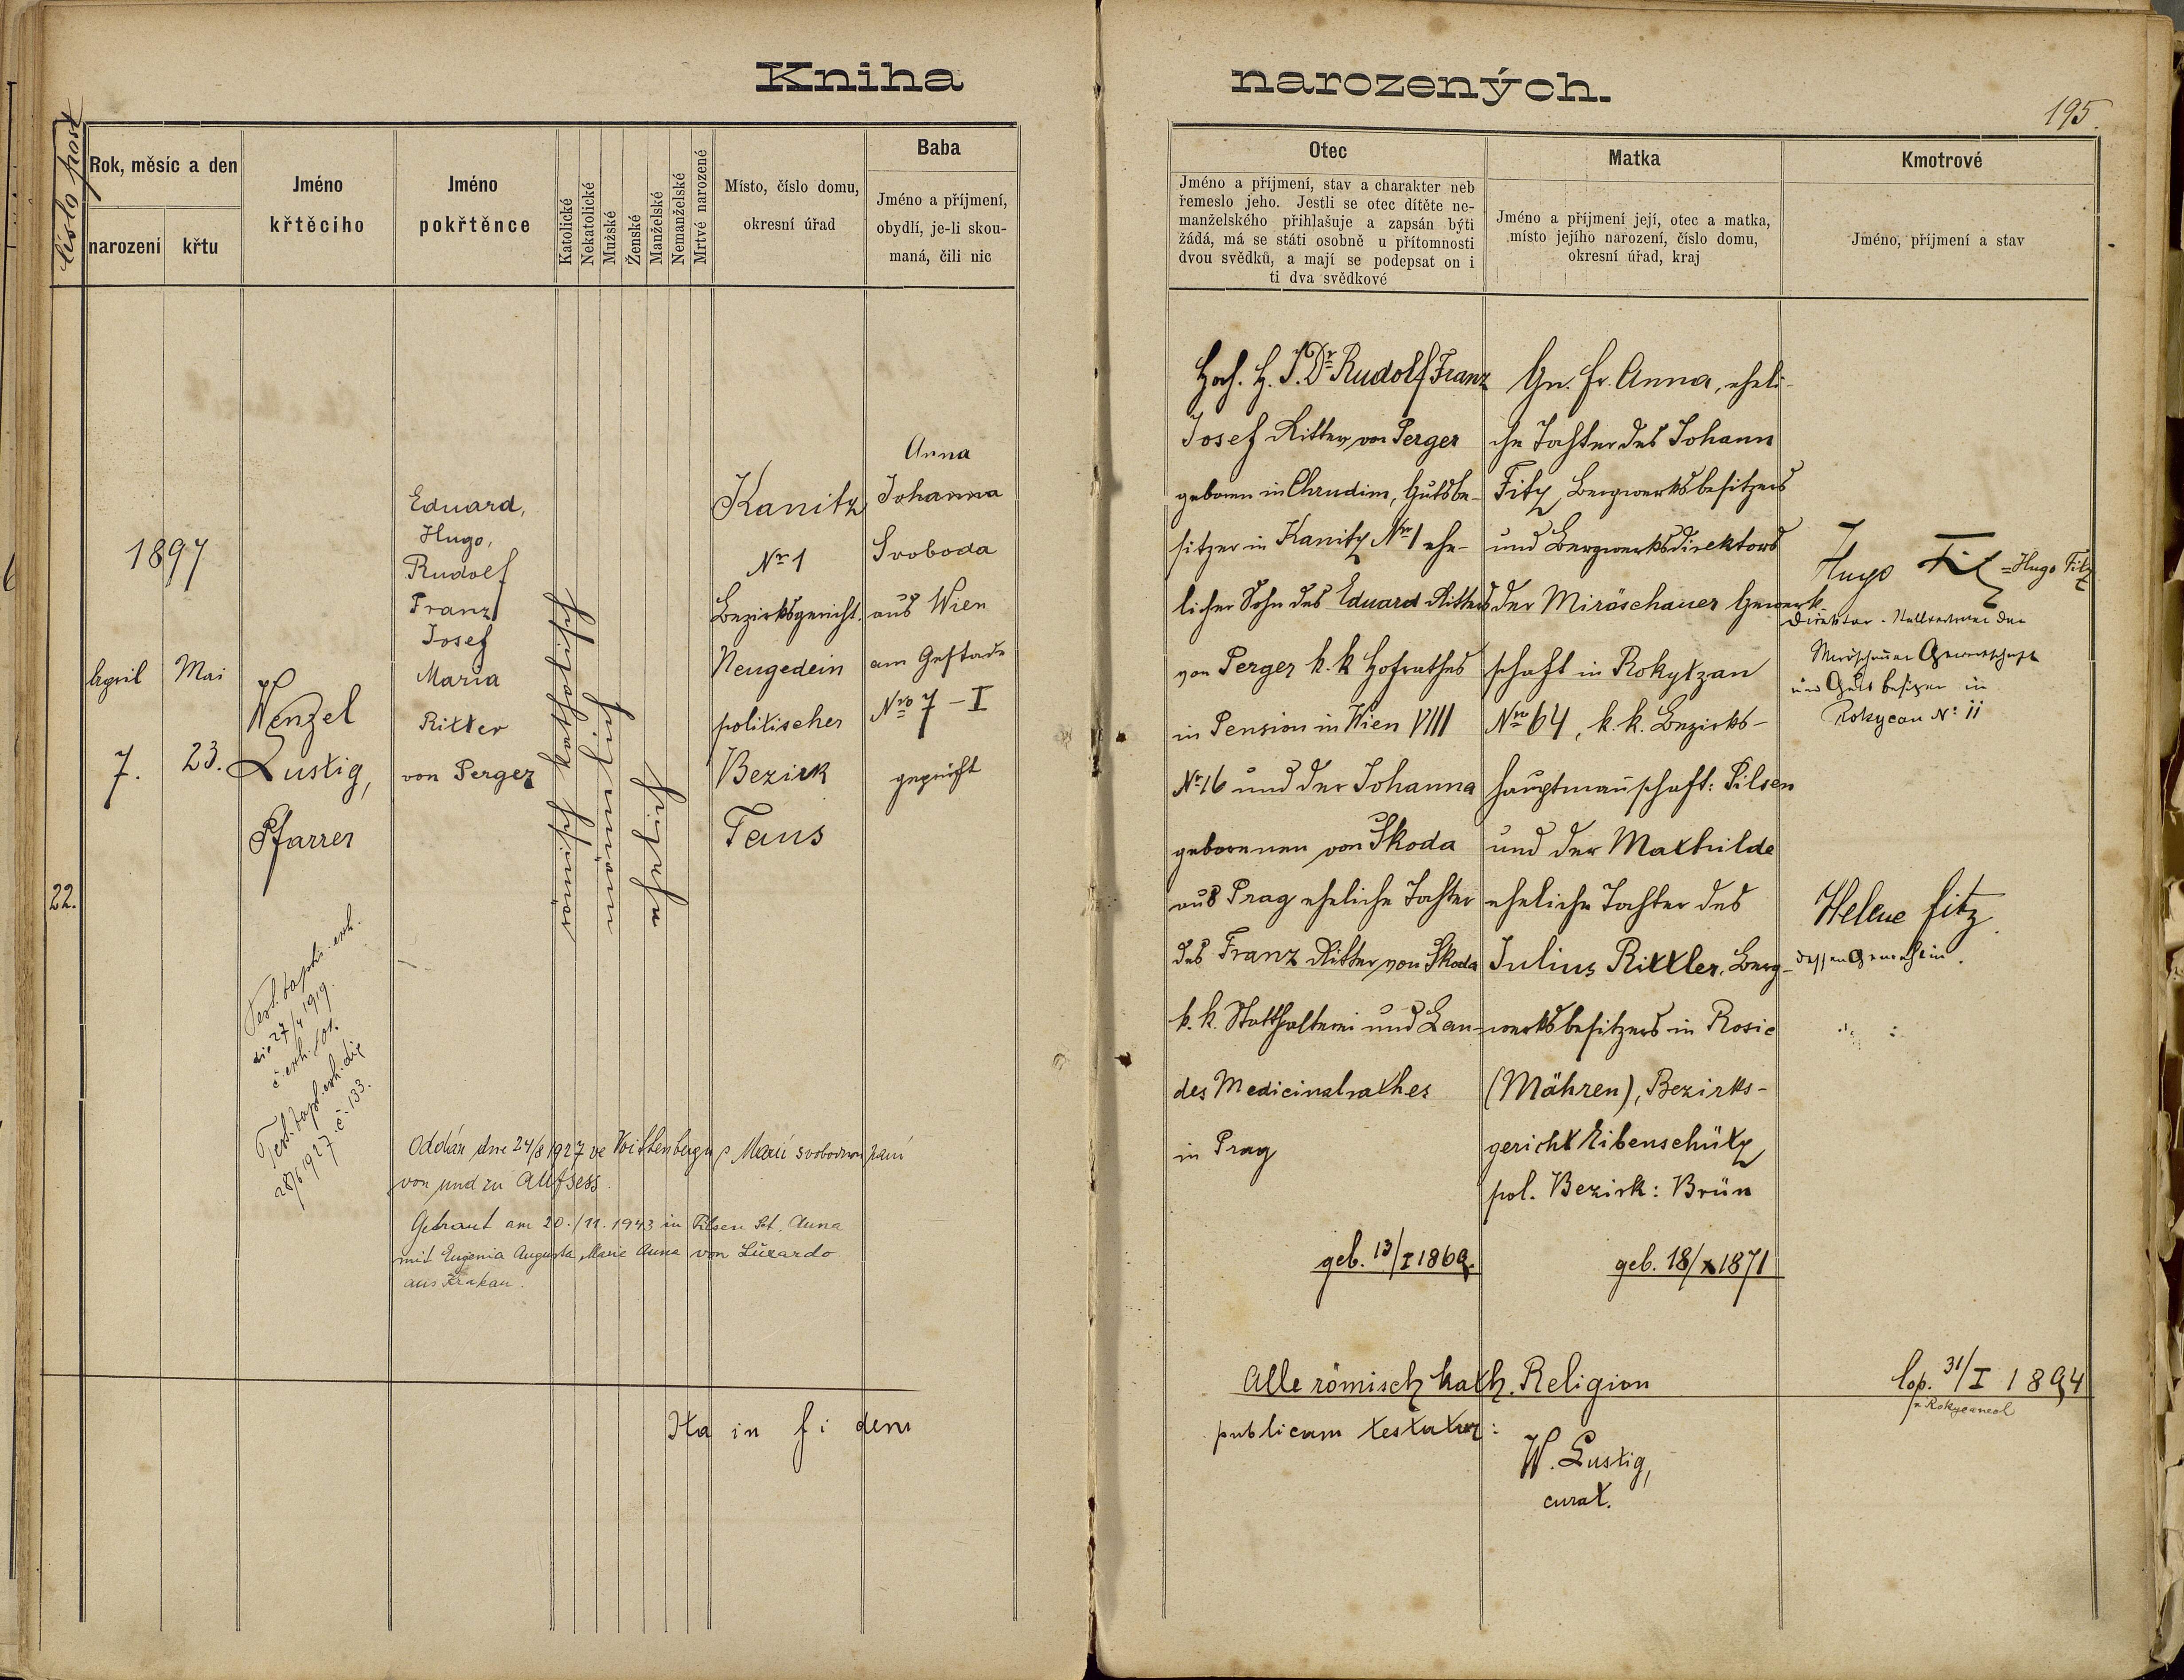 Kniha narozených.
195.
číslo post
Rok, měsíc a den
narození
křtu
Jméno
křtěcího
Jméno
pokřtěnce
Katolické
Nekatolické
Mužské
Ženské
Manželské
Nemanželské
Mrtvé narozené
Místo, číslo domu,
okresní úřad
Baba
Jméno a příjmení,
obydlí, je-li skou-
maná, čili nic
Otec
Jméno a příjmení, stav a charakter neb
řemeslo jeho. Jestli se otec dítěte ne-
manželského přihlašuje a zapsán býti
žádá, má se státi osobně u přítomnosti
dvou svědků, a mají se podepsat on i
ti dva svědkové
Matka
Jméno a příjmení její, otec a matka,
místo jejího narození, číslo domu,
okresní úřad, kraj
Kmotrové
Jméno, příjmení a stav
22.
1897
April
7.
Mai
23.
Wenzel
Lustig,
Pfarrer
27/4 1919.
28/6 1927. č. 133.
Eduard,
Hugo,
Rudolf
Franz
Josef
Maria
Ritter
von Perger
Kanitz
Nr 1
Bezirksgericht.
Neugedein
politischer
Bezirk
Taus
Anna
Johanna
Svoboda
aus Wien
am Gestade
Nro 7 - I
geprüft
Oddán dne 24/8 1927 ve Voithenbergu s Marií svobodnou paní
von und zu Aufsess.
Getraut am 20./11. 1943 in Pilsen Skt. Anna
mit Eugenia Augusta Marie Anna von Luxardo
aus Krakau.
Hoch. H. J. Dr Rudolf Franz
Josef Ritter von Perger
geboren in Chrudim, Gutsbe-
sitzer in Kanitz Nr 1 ehe-
licher Sohn des Eduard Ritters
von Perger k. k. Hofrathes
in Pension in Wien VIII
Nr 16 und der Johanna
geborenen von Skoda
aus Prag eheliche Tochter
des Franz Ritter von Skoda
k. k. Statthalterei und Lan-
des Medicinalrathes
in Prag
geb. 13/I 1869.
Gn. Fr. Anna, eheli-
che Tochter des Johann
Fitz, Bergwerksbesitzers
und Bergwerksdirektors
der Miröschauer Gewerk-
schaft in Rokytzan
Nro 64, k. k. Bezirks-
hauptmannschaft: Pilsen
und der Mathilde
eheliche Tochter des
Julius Rittler, Berg-
werksbesitzers in Rosic
(Mähren), Bezirks-
gericht Eibenschütz
pol. Bezirk: Brün
geb. 18/X 1871
Hugo Fitz = Hugo Fitz
Direktor - Stellvertreter der
Miröschauer Gewerkschaft
und Gutsbesitzer in
Rokycan No 11
Helene Fitz
dessen Gemahlin.
Alle römisch kath. Religion
cop. 31/I 1894
Ita in fidem publicam testatur:
W. Lustig,
curat.